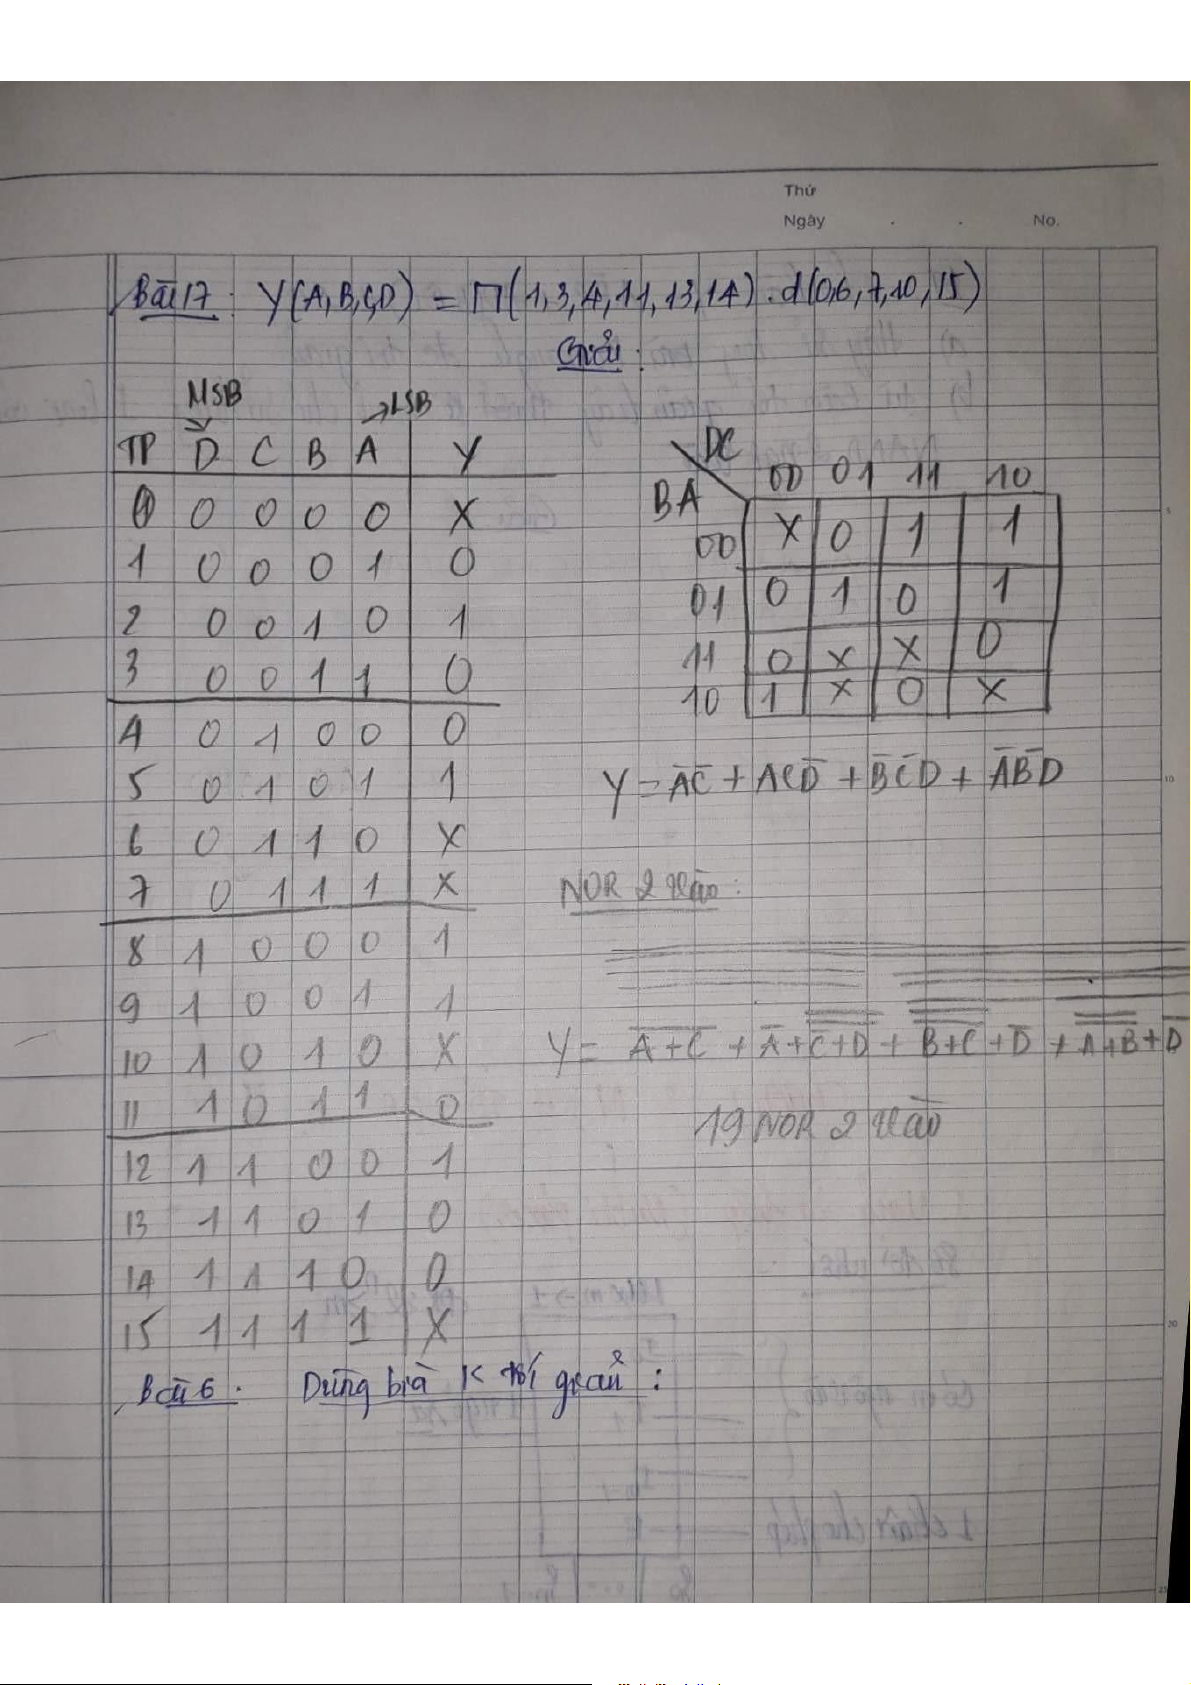 Thứ
Ngày . . No.
Bài 17. Y(A,B,C,D) = Π(1,3,4,11,13,14).d(0,6,7,10,15)
Giải:
MSB
→LSB
TP D C B A Y
0 0 0 0 0 X
1 0 0 0 1 0
2 0 0 1 0 1
3 0 0 1 1 0
4 0 1 0 0 0
5 0 1 0 1 1
6 0 1 1 0 X
7 0 1 1 1 X
8 1 0 0 0 1
9 1 0 0 1 1
10 1 0 1 0 X
11 1 0 1 1 0
12 1 1 0 0 1
13 1 1 0 1 0
14 1 1 1 0 0
15 1 1 1 1 X
DC
BA 00 01 11 10
00 X 0 1 1
01 0 1 0 1
11 0 X X 0
10 1 X 0 X
Y = A̅C̅ + ACD̅ + B̅C̅D + A̅B̅D
NOR 2 vào:
Y = A+C + A̅+C+D + B+C+D̅ + A+B+D̅
19 NOR 2 vào
Bài 6. Dùng bìa K tối giản: